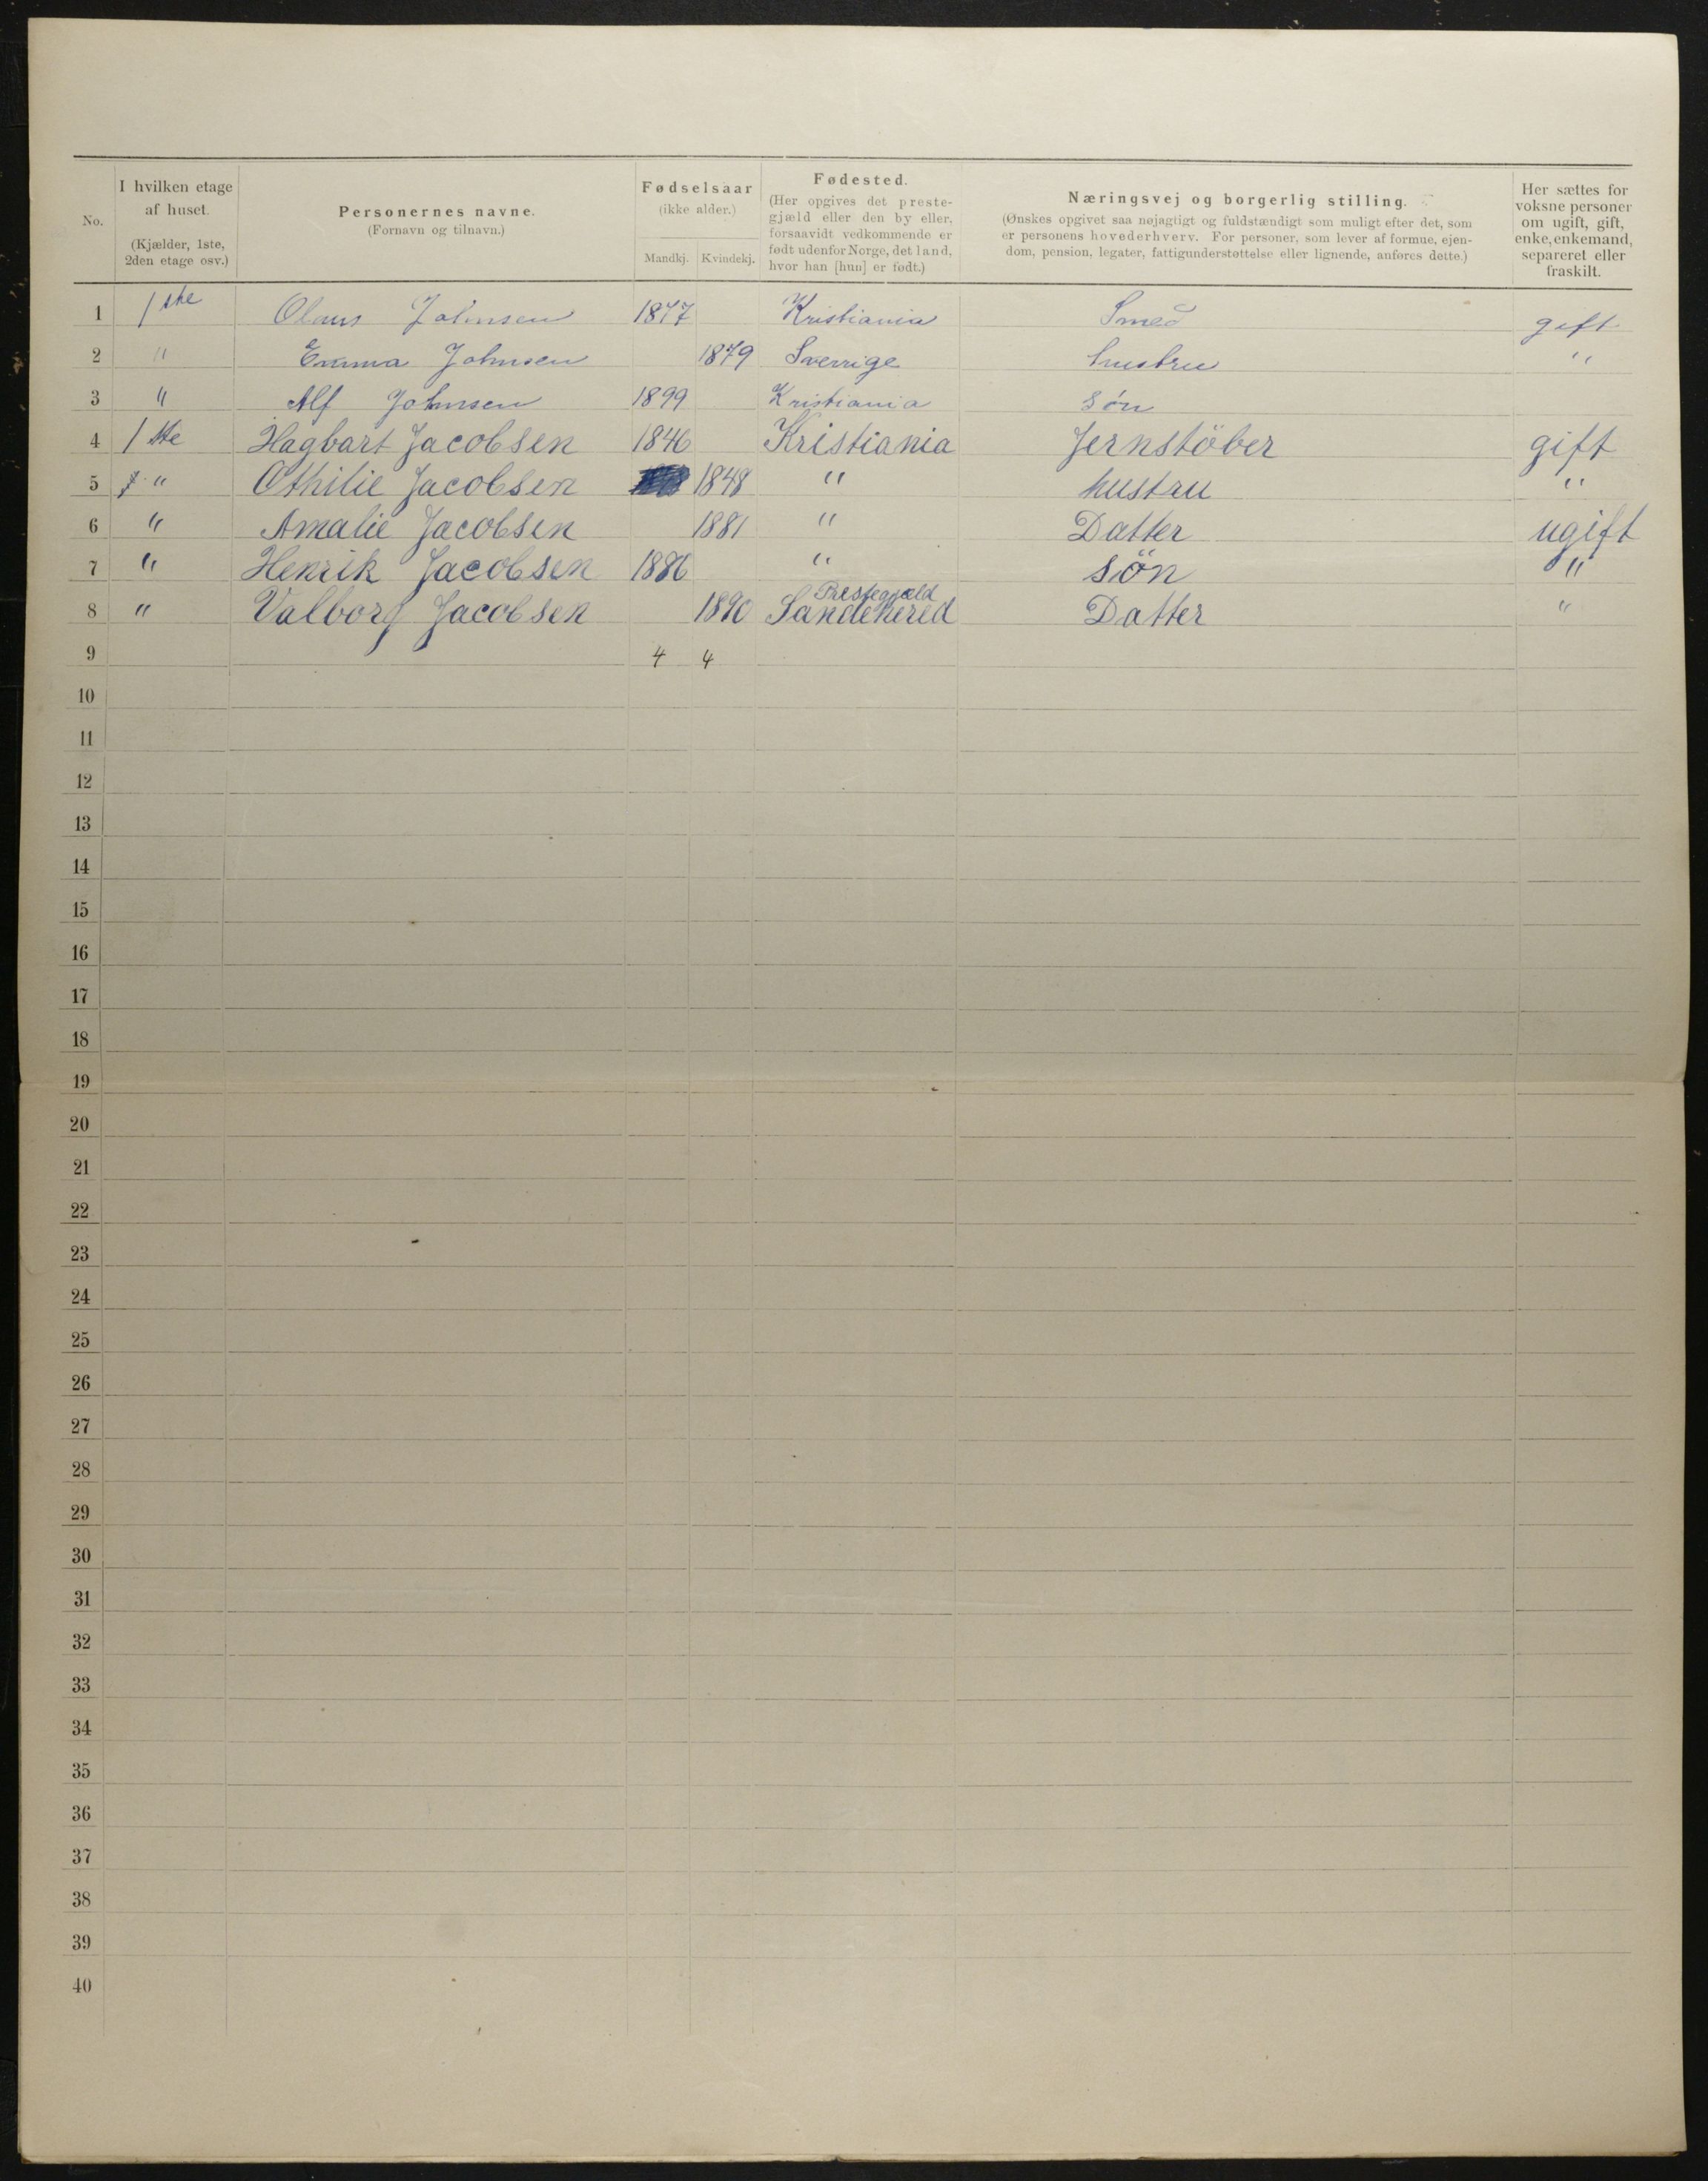 No.
I hvilken etage af huset.
(Kjælder, 1ste, 2den etage osv.)
Personernes navne.
(Fornavn og tilnavn.)
Fødselsaar
(ikke alder.)
Mandkj. Kvindekj.
Fødested.
(Her opgives det preste-
gjæld eller den by eller,
forsaavidt vedkommende er
født udenfor Norge, det land,
hvor han [hun] er født.)
Næringsvej og borgerlig stilling.
(Ønskes opgivet saa nøjagtigt og fuldstændigt som muligt efter det, som
er personens hovederhverv. For personer, som lever af formue, ejen-
dom, pension, legater, fattigunderstøttelse eller lignende, anføres dette.)
Her sættes for
voksne personer
om ugift, gift,
enke, enkemand,
separeret eller
fraskilt.
1 1ste Olaus Johnsen 1877 Kristiania Smed gift
2 " Emma Johnsen 1879 Sverrige hustru "
3 " Alf Johnsen 1899 Kristiania søn
4 1ste Hagbart Jacobsen 1846 Kristiania Jernstöber gift
5 " Othilie Jacobsen 1848 " hustru "
6 " Amalie Jacobsen 1881 " Datter ugift
7 " Henrik Jacobsen 1886 " sön "
Prestegjæld
8 " Valborg Jacobsen 1890 Sandehered Datter "
9 4 4
10
11
12
13
14
15
16
17
18
19
20
21
22
23
24
25
26
27
28
29
30
31
32
33
34
35
36
37
38
39
40